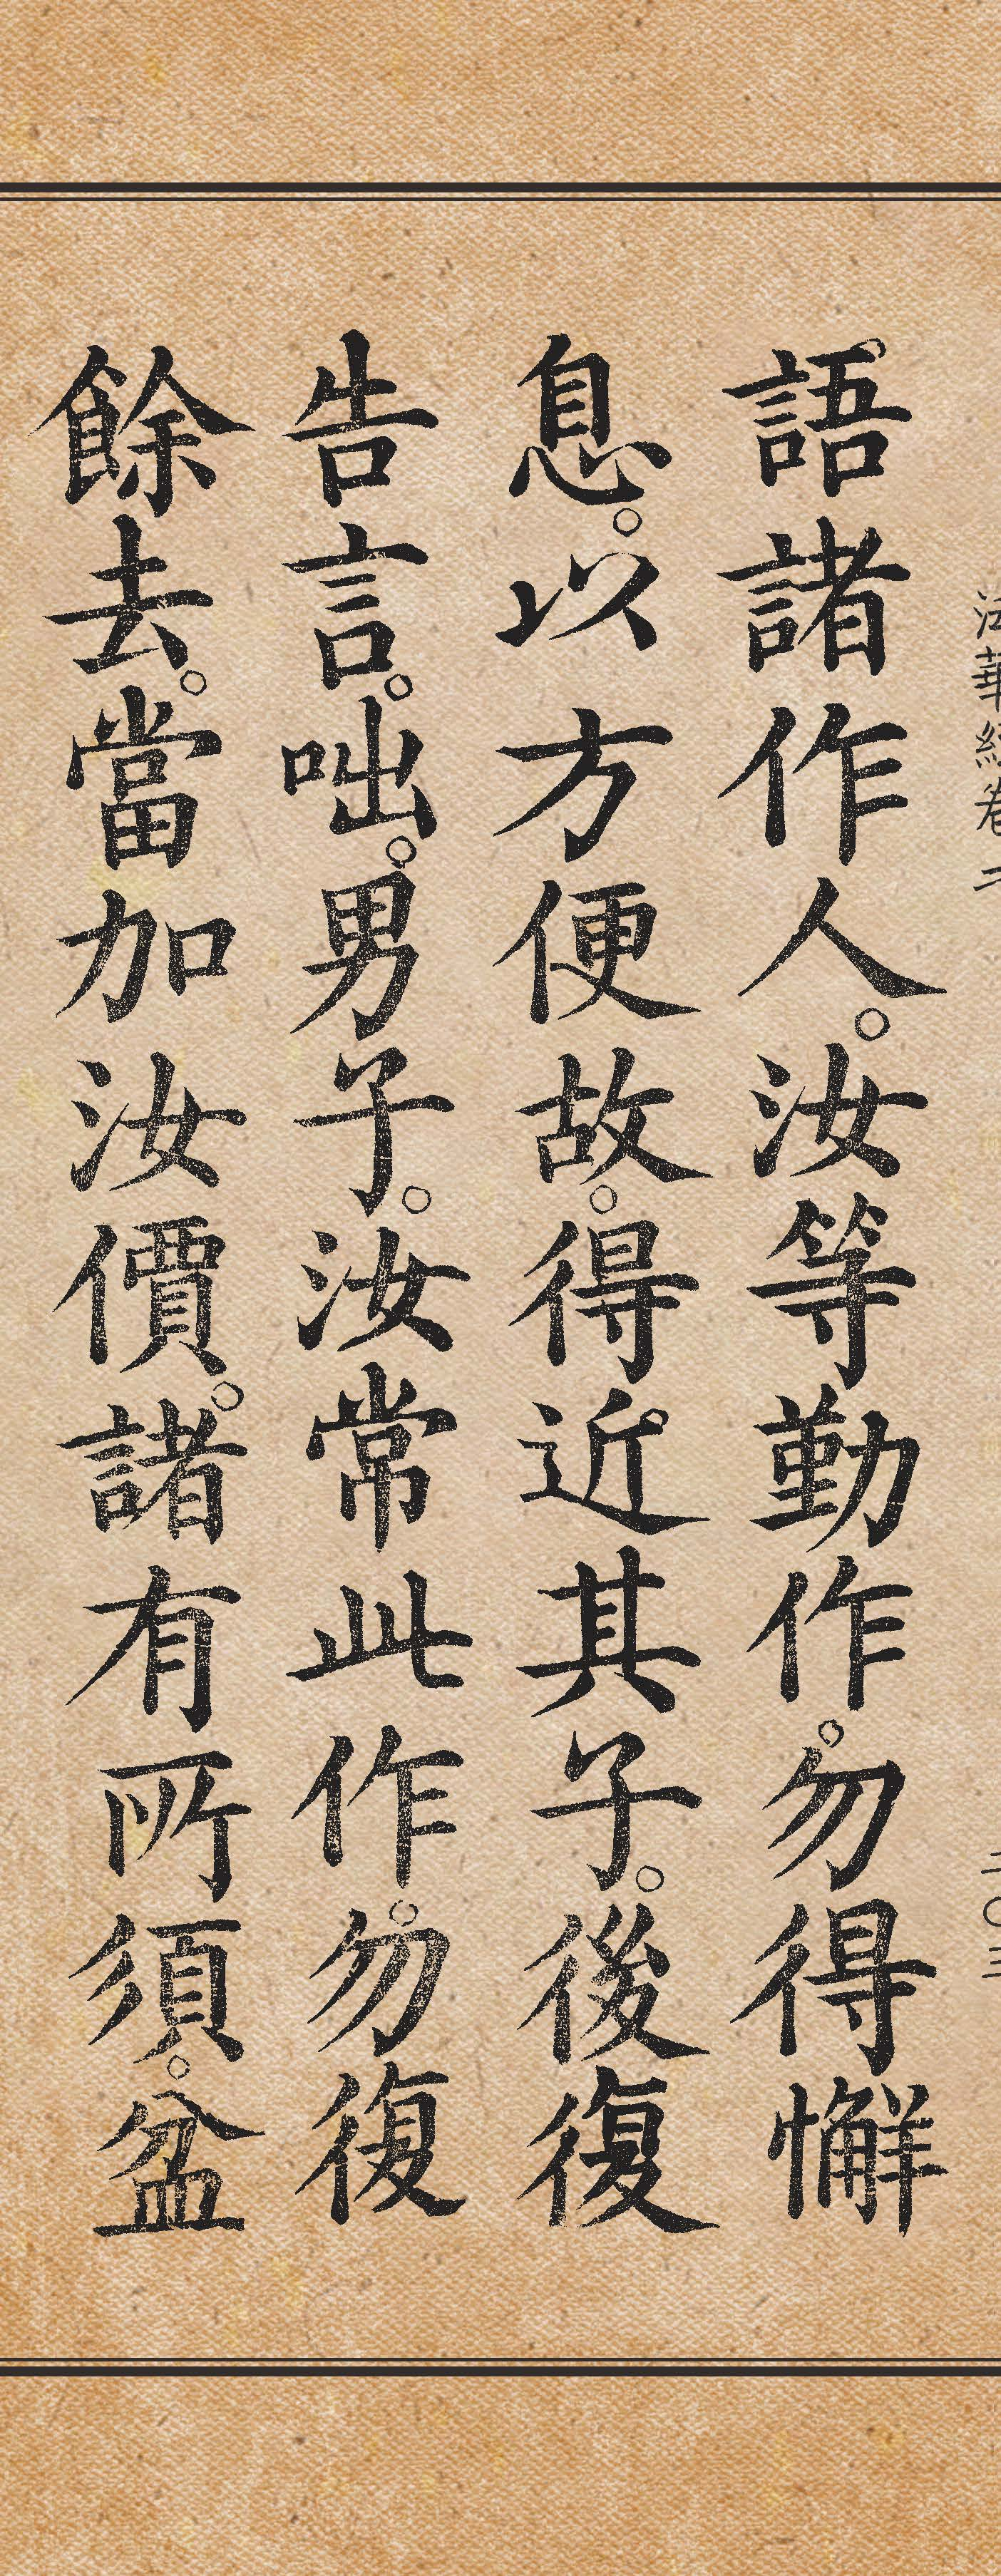 法華經卷二
二〇三
語諸作人。汝等勤作。勿得懈
息。以方便故。得近其子。後復
告言。咄。男子。汝常此作。勿復
餘去。當加汝價。諸有所須。盆